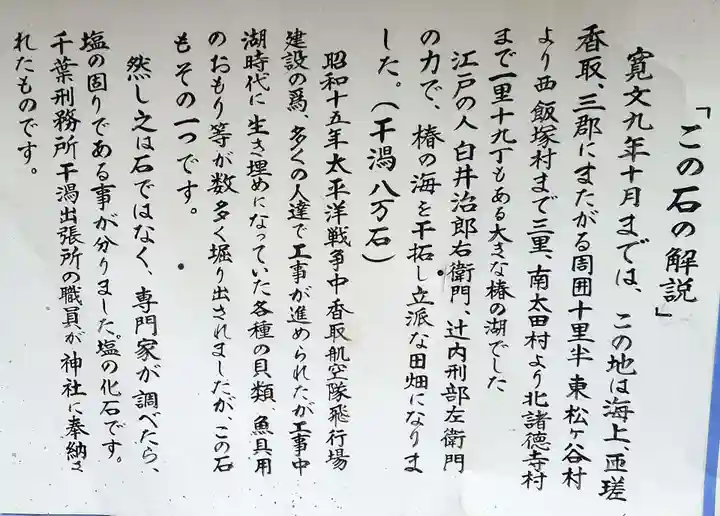 「この石の解説」
寛文九年十月までは、この地は海上、匝瑳
香取、三郡にまたがる周囲十里半 東松ヶ谷村
より西飯塚村まで三里、南太田村より北諸徳寺村
まで一里十九丁もある大きな椿の湖でした
江戸の人白井治郎右衛門、辻内刑部左衛門
の力で、椿の海を干拓し立派な田畑になりま
した。(干潟八万石)
昭和十五年太平洋戦争中香取航空隊飛行場
建設の爲、多くの人達で工事が進められたが工事中
湖時代に生き埋めになっていた各種の貝類、魚具用
のおもり等が数多く堀り出されましたが、この石
もその一つです。
然し之は石ではなく、専門家が調べたら、
塩の固りである事が分りました。塩の化石です。
千葉刑務所干潟出張所の職員が神社に奉納さ
れたものです。